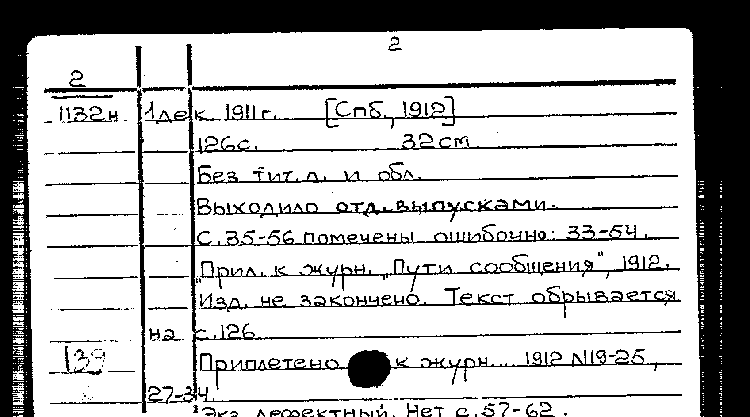 2
2
1132н 1 дек. 1911 г. [Спб., 1912]
126с. 32 см
Без тит. л. и обл.
Выходило отд. выпусками.
С. 35-56 помечены ошибочно: 33-54.
"Прил. к журн. „Пути сообщения", 1912.
Изд. не закончено. Текст обрывается
на с. 126
139 Приплетено к журн... 1912 N19-25,
27-34.
Экз. дефектный. Нет с. 57-62.